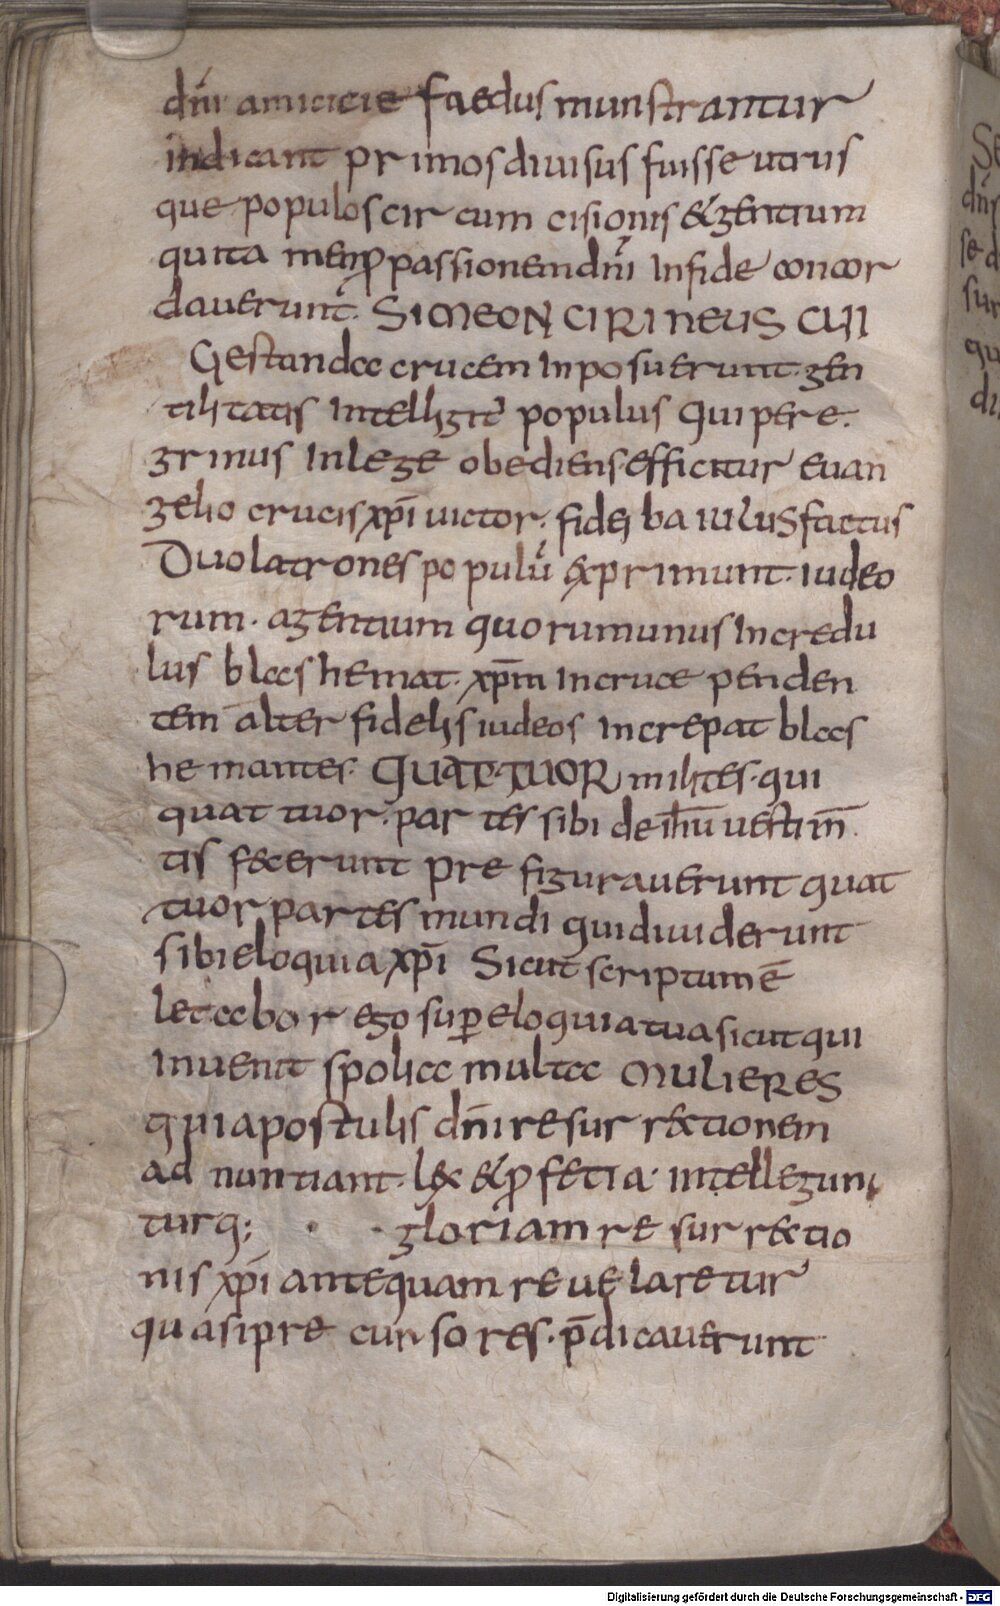 dn̄i amicicie faedus munstrantur
indicant primos diuisus fuisse utrus
que populos cir cum cisionis & gentium
qui ta men ꝑ passionem dn̄i in fide concor
dauerunt. SIMEON CIRINEUS CUI
Gestanda crucem inposuerunt gen
tilitatis intellegit populus qui pere.
grinus in lege obediens efficitur euan
gelio crucis xp̄i uictor. fidei baiulus factus
Duo latrones populū exprimunt. iudeo
rum. a gentium quorum unus incredu
lus blashemat. xp̄m in cruce penden
tem alter fidelis iudeos increpat blas
he mantes. QUATTUOR milites. qui
quat tuor. par tes sibi de ihū uestim̄.
tis fecerunt pre figurauerunt quat
tuor partes mundi qui diuiderunt
sibi eloquia xp̄i Sicut scriptum ē
letabor ego suꝑ eloquia tua sicut qui
inuenit spolia multa MULIERES
qui apostulis dn̄i resur rectionem
ad nuntiant. lex & ꝓfetia. intellegun
tur q; gloriam re sur rectio
nis xp̄i antequam reuelaretur
quasi pre cursores. p̄dicauerunt
Se
dn̄s
se d
sur
qu
di
Digitalisierung gefördert durch die Deutsche Forschungsgemeinschaft - DFG